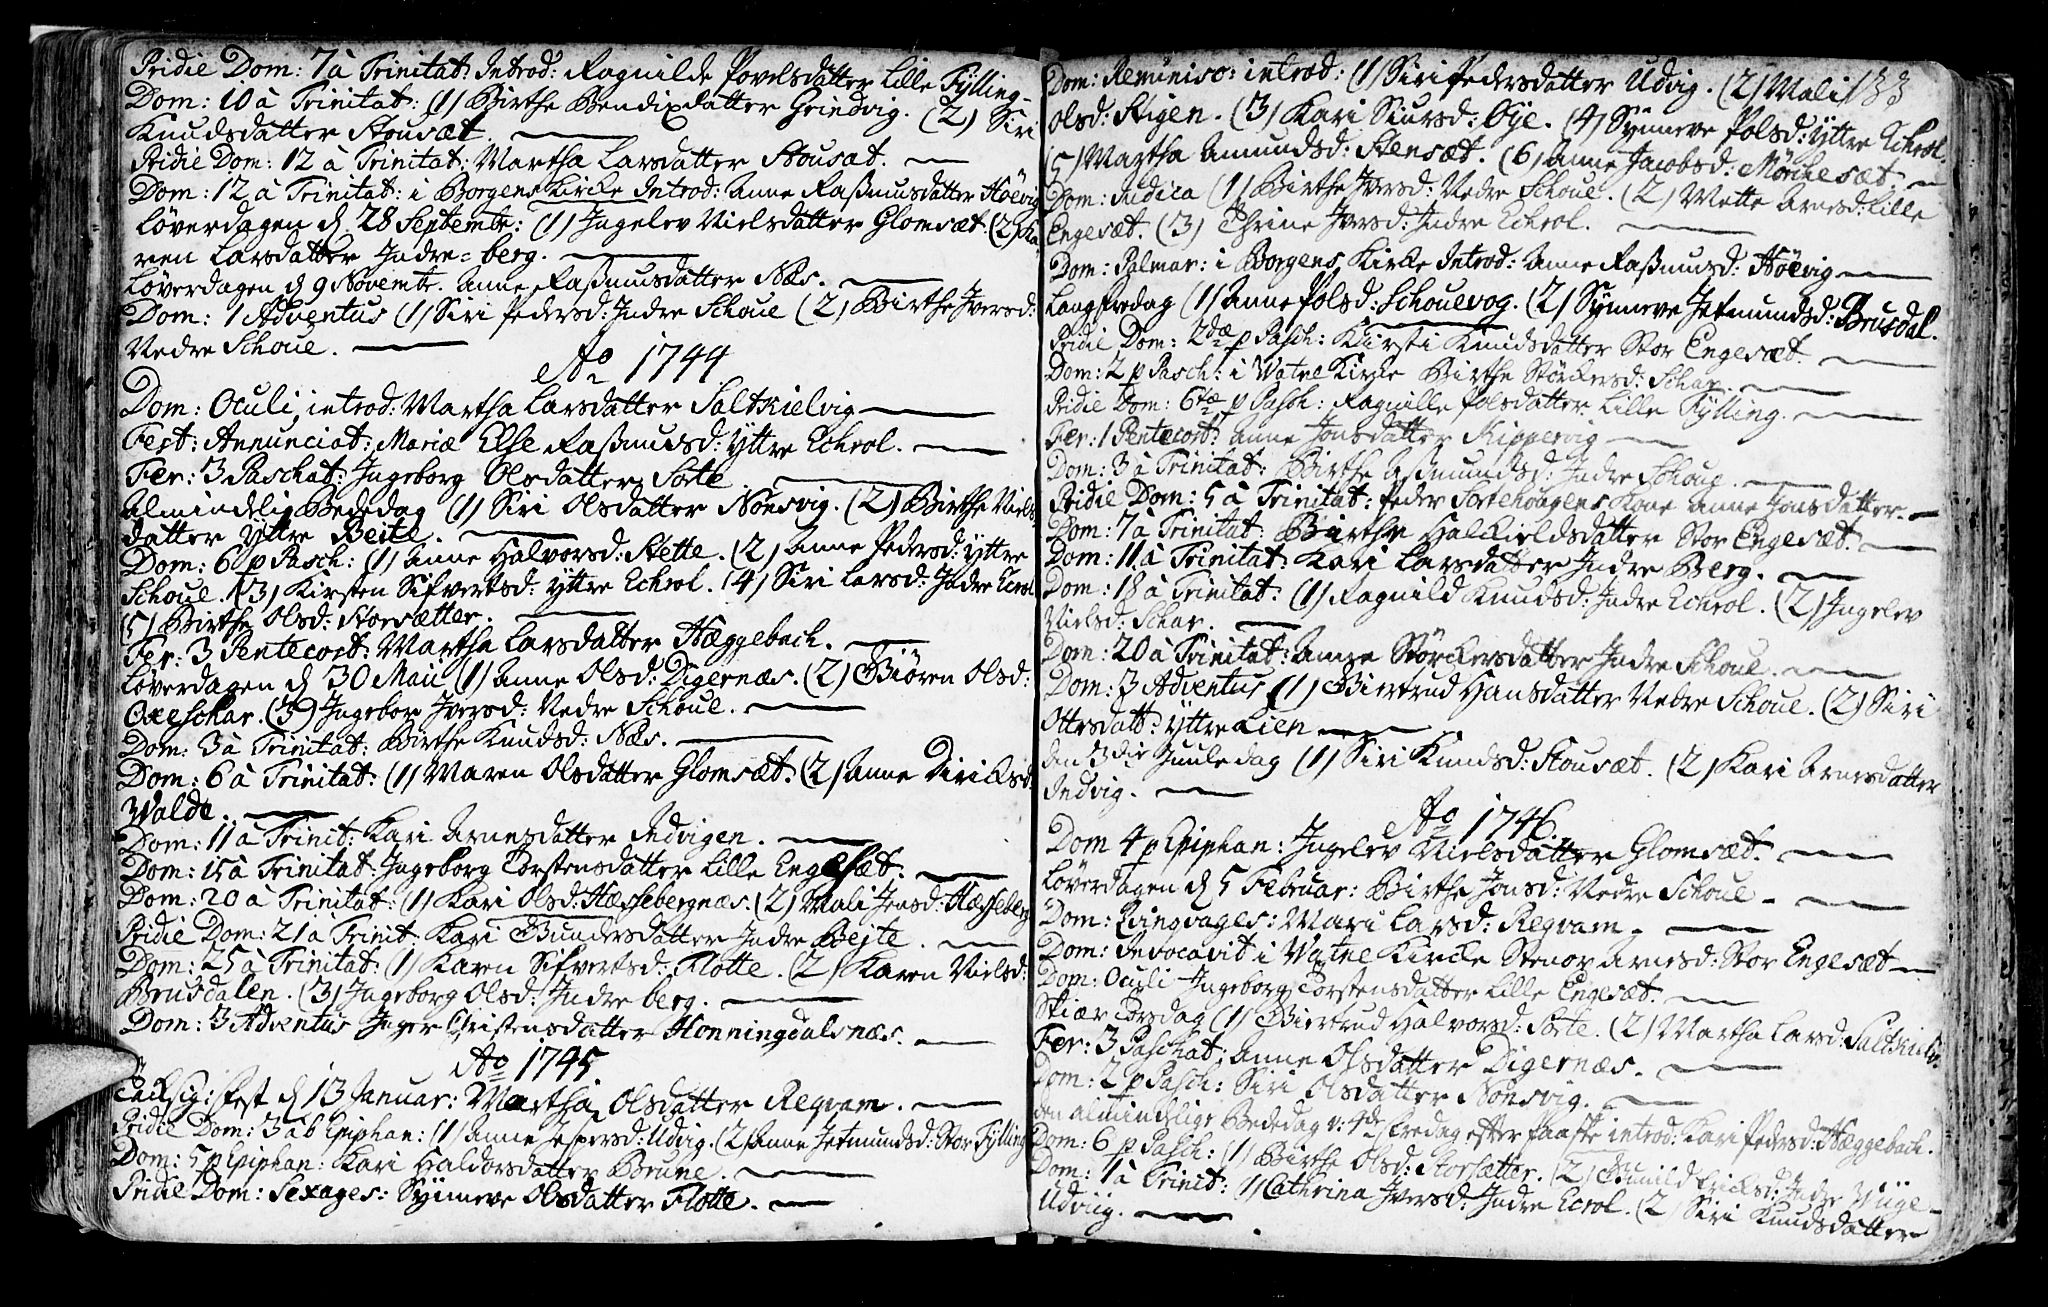 Pridie Dom: 7 à Trinitat: Introd: Ragnilde Povelsdatter Lille Fylling
Dom: 10 à Trinitat: (1) Birthe Bendixdatter Grindvig. (2) Siri
Knudsdatter Stousæt.
Pridie Dom: 12 à Trinitat: Martha Larsdatter Stousæt.
Dom: 12 à Trinitat: i Borgens Kircke Introd: Anne Raßmusdatter Höevig
Löverdagen d 28 Septembr: (1) Ingelev Nielsdatter Glomsæt. (2) Ka
ren Larsdatter Indre-berg.
Löverdagen d 9 Novembr. Anne Raßmusdatter Næs.
Dom: 1 Adventus (1) Siri Pedersd: Indre Schoue (2) Birthe Iversd:
Nedre Schoue.
Ao 1744
Dom: Oculi, introd: Martha Larsdatter Saltkielvig
Fest: Annunciat: Mariæ Else Raßmusd: Yttre Echrol.
Fer: 3 Paschat: Ingeborg Olsdatter Sorte
Almindelig Bededag (1) Siri Olsdatter Nonsvig. (2) Birthe Niels
datter Yttre Beite.
Dom: 6 p Pasch: (1) Anne Halvorsd: Stette. (2) Anne Pedersd: Yttre
Schoue. (3) Kirsten Sifvertsd: Yttre Echrol. (4) Siri Larsd: Indre Ecrol
(5) Birthe Olsd: Storsætter.
Fer: 3 Pentecost: Martha Larsdatter Hæggebach.
Löverdagen d 30 Maii (1) Anne Olsd: Digernæs. (2) Giören Olsd:
Oxeschar. (3) Ingebor Iversd: Nedre Schoue.
Dom: 3 à Trinitat: Birthe Knudsd: Næs.
Dom: 6 à Trinitat: (1) Maren Olsdatter Glomsæt. (2) Anne Diricksd:
Walde.
Dom: 11 à Trinit: Kari Arnesdatter Indvigen.
Dom: 15 à Trinitat: Ingeborg Torstensdatter Lille Engesæt.
Dom: 20 à Trinitat: (1) Kari Olsd: Hessebergnæs. (2) Mali Jensd: Hesseberg
Pridie Dom: 21 à Trinit: Kari Gundersdatter Indre Bejte.
Dom: 25 à Trinitat: (1) Karen Sifvertsd: Flotte. (2) Karen Nielsd:
Brusdalen. (3) Ingeborg Olsd: Indre berg.
Dom: 3 Adventus Inger Christensdatter Honningdalsnæs.
Ao 1745
Tacksig: fest d 13 Januar: Martha Olsdatter Reqvam.
Pridie Dom: 3 ab Epiphan: (1) Anne Jespersd: Udvig. (2) Anne Jetmundsd: Stor Fylling
Dom: 5 p Epiphan: Kari Haldorsdatter Brune.
Pridie Dom: Sexages: Synneve Olsdatter Flotte.
Dom: Reminisc: introd: (1) Siri Pedersdatter Udvig. (2) Mali 133
Olsd: Stigen. (3) Kari Siursd: Øye. (4) Synneve Polsd: Yttre Echrol
(5) Martha Amundsd: Stensæt. (6) Anne Jacobsd: Mörchesæt
Dom: Judica (1) Birthe Iversd: Nedre Schoue. (2) Mette Arnesd: Lille
Engesæt. (3) Thrine Iversd: Indre Echrol.
Dom: Palmar: i Borgens Kirke Introd: Anne Raßmusd: Höevig
Langfredag (1) Anne Polsd: Schouevog. (2) Synneve Jetmundsd: Brusdal.
Pridie Dom: 2dæ p Pasch: Kirsti Knudsdatter Stor Engesæt.
Dom: 2 p Pasch: i Watne Kirke Birthe Störckersd: Schar.
Pridie Dom: 6tæ p Pasch: Ragnille Polsdatter Lille Fylling.
Fer: 1 Pentecost: Anne Jonsdatter Kippervig
Dom: 3 à Trinitat: Birthe Asmundsd: Indre Schoue.
Pridie Dom: 5 à Trinitat: Peder Sortehougens Kone Anne Jonsdatter.
Dom: 7 à Trinitat: Birthe Halkieldsdatter Stor Engesæt.
Dom: 11 à Trinitat: Kari Larsdatter Indre Berg.
Dom: 18 à Trinitat: (1) Ragnild Knudsd: Indre Echrol. (2) Ingelev
Nielsd: Schar.
Dom: 20 à Trinitat: Anne Störckersdatter Indre Schoue.
Dom: 3 Adventus (1) Giertrud Hansdatter Nedre Schoue. (2) Siri
Ottesdatt: Yttre Lien
den 3die Juule dag (1) Siri Knudsd: Stousæt. (2) Kari Arnesdatter
Indvig.
Ao 1746.
Dom 4 p Epiphan: Ingelev Nielsdatter Glomsæt.
Löverdagen d 5 Februar: Birthe Jonsd: Nedre Schoue
Dom: Qvinqvages: Mari Larsd: Reqvam
Dom: Invocavit i Watne Kircke Stenor Arnesd: Stor Engesæt
Dom: Oculi Ingeborg Torstensdatter Lille Engesæt.
Skiær Torsdag (1) Giertrud Halvorsd: Sorte. (2) Martha Larsd: Saltkielv:
Fer: 3 Paschat: Anne Olsdatter Digernæs.
Dom: 2 p Pasch: Siri Olsdatter Nonsvig.
den almindelige Bededag v: 4de Fredag efter Paaske introd: Kari Pedersd: Hæggebach.
Dom: 6 p Pasch: (1) Birthe Olsd: Storsætter. (2) Gunild Ericksd: Indre Viige
Dom: 1 à Trinit: (1) Cathrina Iversd: Indre Ecrol. (2) Siri Knudsdatter
Udviig.